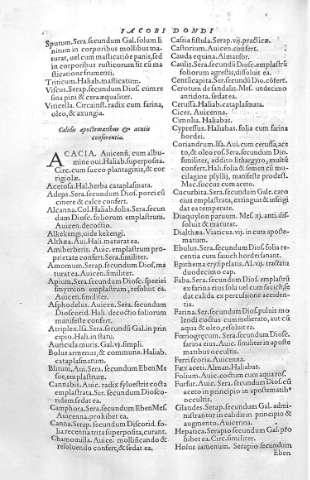 IACOBI DONDI
Sputum, Sera. secundum Gal. solum li
nitum in corporibus mollibus ma-
turat, uel cum masticatione panis, sed
in corporibus rusticorum fit cum ma
sticatione frumenti.
Triticum. Haliab. masticatum.
Viscus. Serap. secundum Diosc. cum re
sina pini & cera æqualiter.
Vincella. Circinst. radix cum farina,
oleo, & axungia.
Calidis apostematibus & acutis
conferentia.
ACACIA. Auicen. cum albu-
mine oui. Haliab. superposita.
Circ. cum succo plantaginis, &
Acetosa. Hal. herba cataplasmata.
Adeps. Sera. secundum Diosc. porci cū
cinere & calce confert.
Alcanna. Col. Haliab. folia. Sera. secun
dum Diosc. foliorum emplastrum.
Auizen. decoctio.
Alkekengi, uide kekengi.
Althæa. Aui. Hali. maturat ea.
Amiberberis. Auic. emplastrum pro-
prietate confert. Sera. similiter.
Amomum. Serap. secundum Dios. ma
turat ea. Auicen. similiter.
Apium. Sera. secundum Diosc. speciei
smyrnion emplastrum, resoluit ea.
Auicen. similiter.
Asphodelus. Auicen. Sera. secundum
Dioscorid. Hali. decoctio foliorum
manifeste confert.
Atriplex. Isa. Sera. secundū Gal. in prin
cipio. Hali. in statu.
Auricula muris. Gal. vj. simpli.
Bolus armenus, & communis. Haliab.
cataplasmatum.
Blitum. Aui. Sera. secundum Eben Me
sue, ex plastrum.
Cannabis. Auic. radix syluestris cocta
emplastrata. Ser. secundum Diosco-
ridem sedat ea.
Camphora. Sera. secundum Eben Mes.
Auicenna. prohibet ea.
Canna. Serap. secundum Discorid. fo-
lia recentia trita superposita, curant.
Chamomilla. Auice. mollificando &
resoluendo confert, & sedat ea.
Cassia fistula. Serap. vij. practicæ.
Castorium. Auicen. confert.
Cauda equina. Almansor.
Caulis. Sera. secundū Diosc. emplastrū
foliorum agrestis, dissoluit ea.
Centū capita. Ser. secundū Dio. cōfert.
Cerotum de sandalis. Mes. undecimo
antidota. sedat ea.
Cerussa. Haliab. cataplasmata.
Cicer. Auicenna.
Cimolia. Haliabas.
Cypressus. Haliabas. folia cum farina
hordei.
Coriandrum. Isa. Aui. cum cerussa, ace
to, & oleo ros. Sera. secundum Dio.
similiter, addito lithargyro, multū
confert. Hali. folia & semen cū mu-
cilagine psyllij, manifeste prodest.
Mac. succus cum aceto.
Cucurbita. Sera. secundum Gal. caro
eius emplastrata, extinguit & infrigi
dat ea temperate.
Diaquylon paruum. Mes. xj. anti. dis-
soluit & maturat.
Dialthæa. Viaticus. vij. in cura aposte-
matum.
Ebulus. Sera. secundum Dios. folia re-
centia cum sauich hordei sanant.
duodecimo cap.
Faba. Sera. secundum Dios. emplastrū
ex farina eius sola uel cum sauich, se
dat calida ex percussione acciden-
tia.
Farina. Ser. secundum Dios. puluis mo
lendi coctus cum melicrato, aut cū
aqua & oleo, resoluit ea.
Fœnugræcum. Sera. secundum Diosc.
farina eius. Auic. similiter in aposte
matibus occultis.
Formicaria. Auicenna.
Fæx aceti. Almas. Haliabas.
Folium. Auic. coctum cum aqua ros.
Furfur. Auic. Sera. secundum Dios. cū
aceto in principio in apostematib⁹
occultis.
Glandes. Serap. secundum Gal. admi-
nistrantur in calidis in principio &
augmento. Auicenna.
Hepatica. Serap. secundum Gal. pro
hibet ea. Circ. similiter.
Serapio secundum
Eben